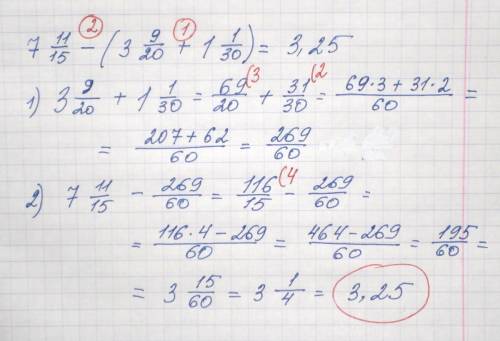 2 1
7 11/15 - (3 9/20 + 1 1/30) = 3,25
1) 3 9/20 + 1 1/30 = 69/20 (3 + 31/30 (2 = 69·3 + 31·2/60 =
= 207 + 62/60 = 269/60
2) 7 11/15 - 269/60 = 116/15 (4 - 269/60 =
= 116·4 - 269/60 = 464 - 269/60 = 195/60 =
= 3 15/60 = 3 1/4 = 3,25